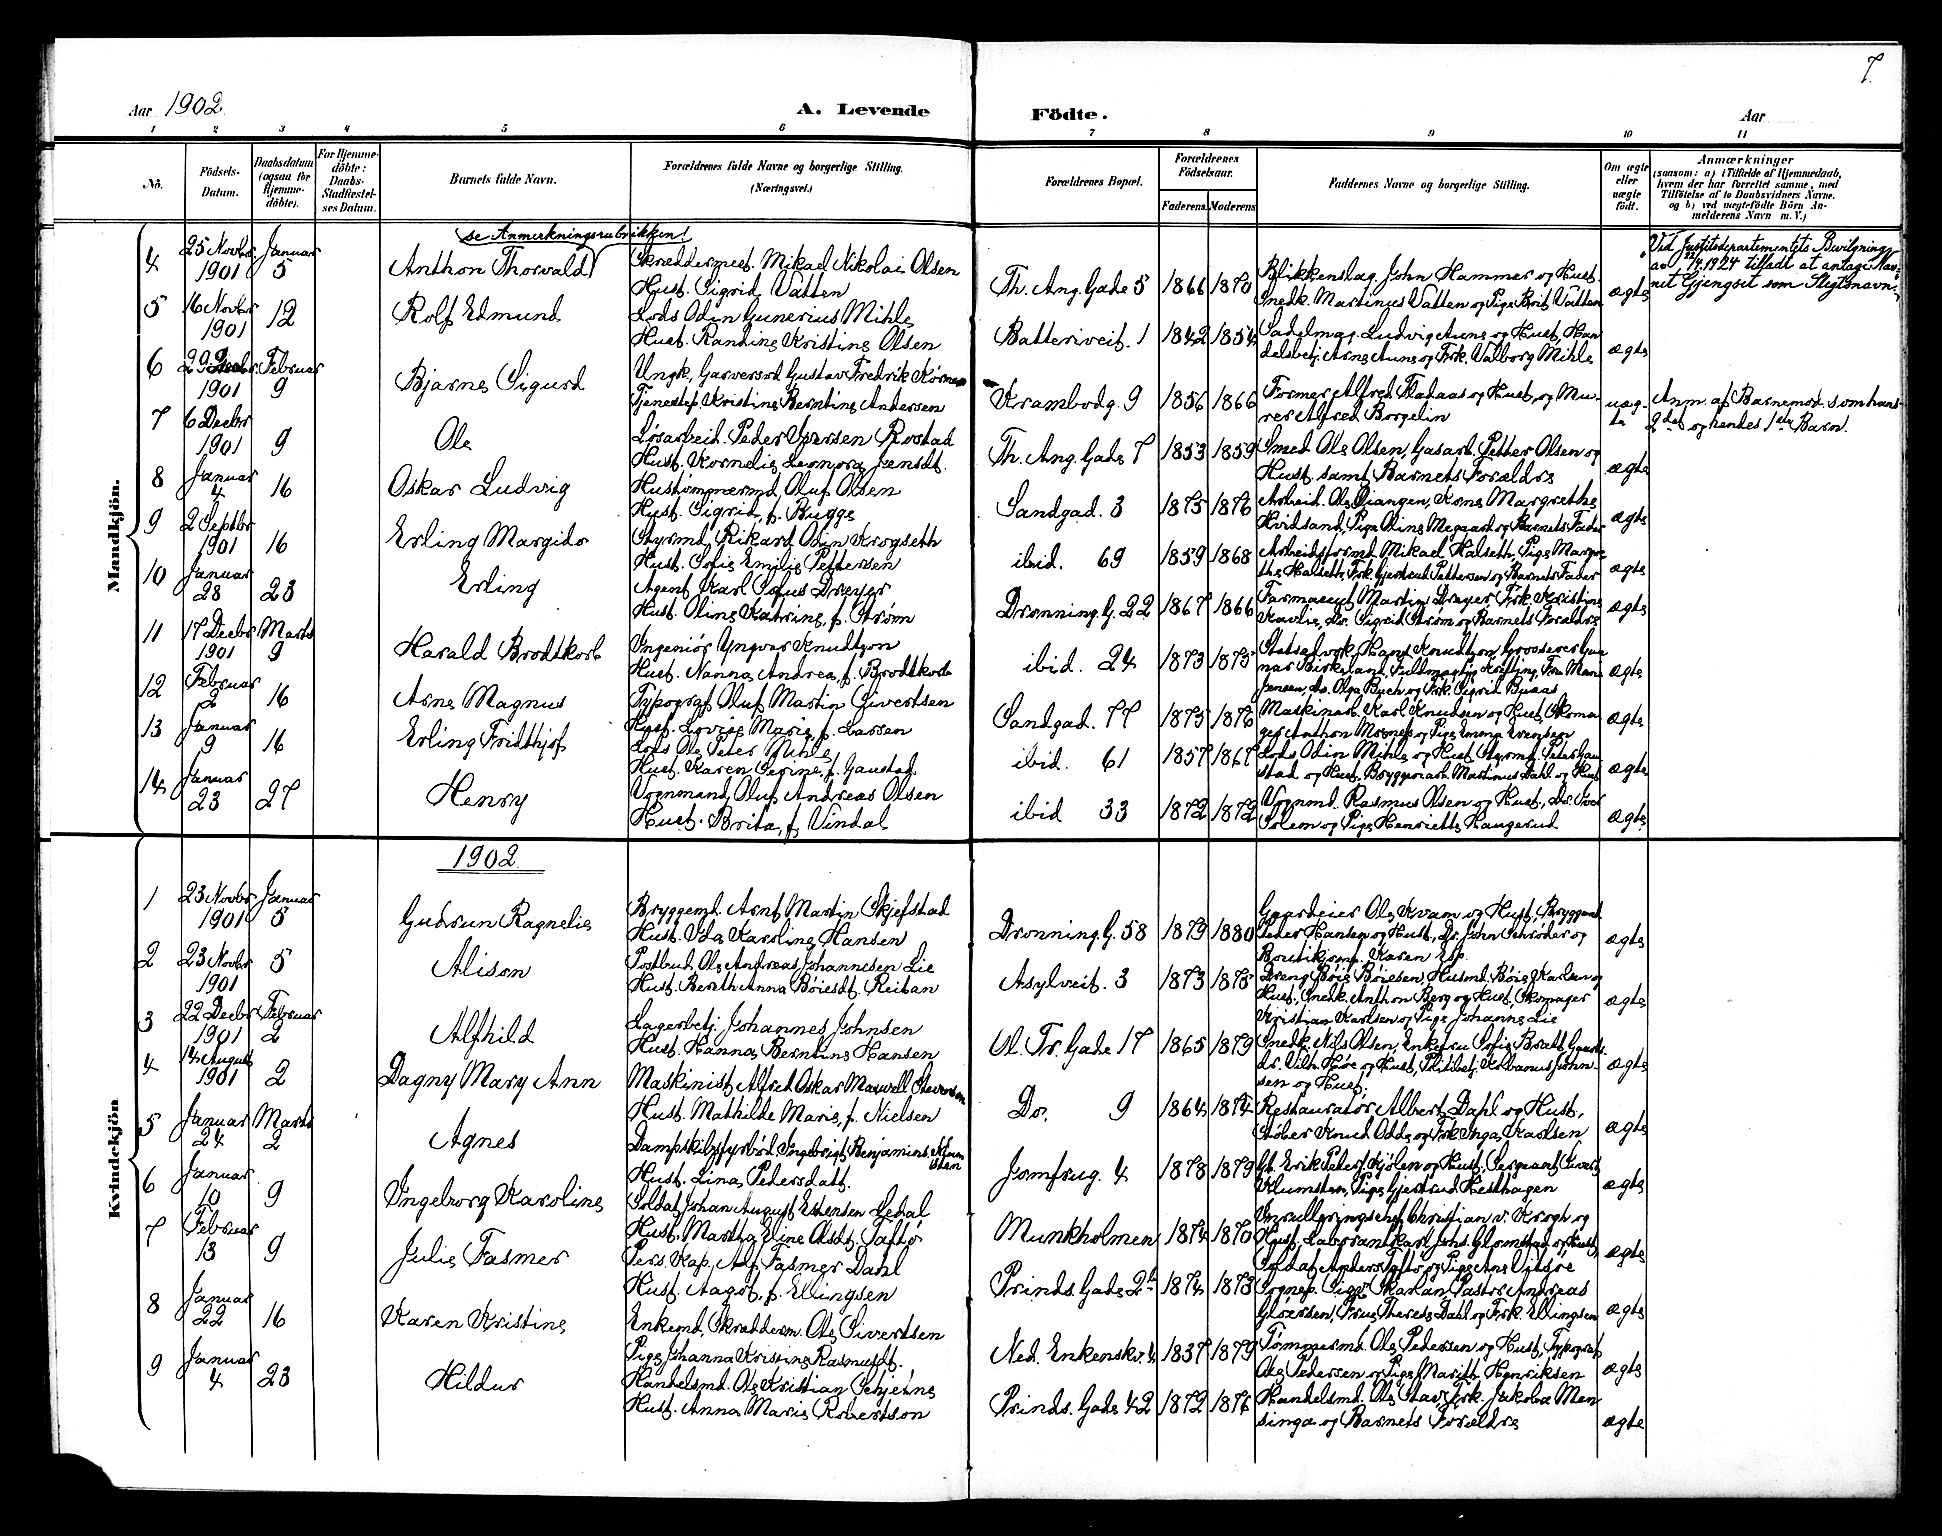 7.
Aar 1902. A. Levende Födte. Aar
1 2 3 4 5 6 7 8 9 10 11
No.
Födsels-Datum.
Daabsdatum (ogsaa for Hjemme-döbte).
For Hjemme-döbte: Daabs-Stadfæstel-ses Datum.
Barnets fulde Navn.
Forældrenes fulde Navne og borgerlige Stilling. (Næringsvei.)
Forældrenes Bopæl.
Forældrenes Födselsaar.
Faderens. Moderens
Faddernes Navne og borgerlige Stilling.
Om ægte eller uægte født.
Anmærkninger
(saasom: a) i Tilfælde af Hjemmedaab, hvem der har forrettet samme, med Tilføielse af to Daabsvidners Navne, og b) ved uægtefødte Börn An-melderens Navn m. V.)
Mandkjön.
se Anmerkningsrubrikken!
4 25 Novbr 1901 Januar 5 Anthon Thorvald
Skreddermest. Mikael Nikolai Olsen
Hust. Sigrid Vatten
Th. Ang. Gade 5 1866 1870
Blikkenslag. John Hammer og Hust.
Snedk. Martinus Vatten og Pige Brit Vatten
ægte
Ved Justitsdepartementets Bevilgning
av 22/4 1924 tilladt at antage Nav-
net Gjengset som Slegtsnavn.
5 16 Novbr 1901 12 Rolf Edmund
Lods Odin Gunerius Mihle
Hust. Randine Kristine Olsen
Batteriveit. 1 1842 1854
Sadelmag. Ludvig Aune og Hust, Han
delsbetj. Arne Aune og Frk. Valborg Mihle
ægte
6 29 1901 Februar 9 Bjarne Sigurd
Ungk, Garversvd Gustav Fredrik
Tjenestep. Kristine Berntine Andersen
Krambodg. 9 1856 1866
Former Alfred Fladaas og Hust, og Mu-
rer Alfred Borgelin
uæg-
te
Anm. af Barnemod. som hans
2det og hendes 1ste Barn.
7 6 Decbr 1901 9 Ole
Løsarbeid. Peder Iversen Rostad
Hust. Kornelie Leonora Jensdt.
Th. Ang. Gade 7 1853 1859
Smed Ole Olsen, Gasarb. Petter Olsen og
Hust samt Barnets Forældre
ægte
8 Januar 4 16 Oskar Ludvig
Hustømmermd, Oluf Olsen
Hust. Sigrid, f. Bugge
Sandgad. 3 1875 1876
Arbeid. Ole Kone Margrethe
Hvidsand, Pige Oline Megaard og Barnets Fader
ægte
9 2 Septbr 1901 16 Erling Margido
Styrmd, Rikard Odin Krogseth
Hust. Sofie Emilie Pettersen
ibid. 69 1859 1868
Arbeidsformd Mikael Halseth, Pige Margre
the Halseth, Frk Gjertrud Pettersen og Barnets Fader
ægte
10 Januar 28 23 Erling
Agent Karl Sofus Dreyer
Hust. Oline Katrine, f. Strøm
Dronning. G. 22 1867 1866
Farmaceut Martin Dreyer Frk Kristine
Kavlie, Do. Sigrid Strøm og Barnets Forældre
ægte
11 17 Decbr 1901 Marts 9 Harald Brodtkorb
Ingeniør Yngvar Knudtzon
Hust. Nanna Andrea, f. Brodtkorb
ibid. 24 1873 1875
Statsadvok. Hans Knudtzon, Grosserer Gun
nar Birkeland, Fuldmægtig Kræfting, Fru Marie
Jensen, do. Olga Buch og Frk. Sigrid Buaas
ægte
12 Februar 2 16 Arne Magnus
Typograf Oluf Martin Sivertsen
Hust. Lovise Marie, f. Larsen
Sandgad. 77 1875 1876
Maskinarb. Karl Knudsen og Hust, Skoma
ger Anthon Mosnes og Pige Emma Svensen
ægte
13 Januar 9 16 Erling Fridthjof
Lods Ole Peter Mihle
Hust. Karen Serine, f. Gaustad
ibid. 61 1857 1867
Lods Odin Mihle og Hust Styrmd. Peter Gau
stad og Hust, Bryggearb. Martinus Dahl og Hust
ægte
14 Januar 23 27 Henry
Vognmand, Oluf Andreas Olsen
Hust. Brita, f. Vindal
ibid 33 1872 1872
Vognmd. Rasmus Olsen og Hust., Do. Iver
Solem og Pige Henriette Haugerud
ægte.
Kvindekjön
1902.
1 23 Novbr 1901 Januar 5 Gudrun Ragnelie
Bryggemd. Arnt Martin Skjefstad
Hust. Ida Karoline Hansen
Dronning. G. 58 1879 1880
Gaardeier Ole Kvam og Hust, Bryggemd.
Peder Hansen og Hust, Do. John Schrøder og
Boutikjomf. Karen Esp
ægte
2 23 Novbr 1901 5 Alison
Postbud, Ole Andreas Johannesen Lie
Hust. Bereth Anna Bøiesdt. Reitan
Asylveit. 3 1873 1875
Dreng Bøie Bøiesen, Husmd. Bøie Karlsen og
Hust, Snedk. Anthon Berg og Hust. Skomager
Kristian Karlsen og Pige Johanne Lie
ægte
3 22 Decbr 1901 Februar 2 Alfhild
Lagerbetj. Johannes Johnsen
Hust. Hanna Berntine Hansen
Ol. Tr. Gade 17 1865 1879
Snedk. Nils Olsen, Enkefru Sofie Bratt Gaards
dr. Vilh. Høve og Hust, Politibetj. Urbanus John-
sen og Hust.
ægte
4 14 August 1901 2 Dagny Mary Ann
Maskinist Alfred Oskar Maxwell Stevenson
Hust. Mathilde Marie, f. Nielsen
Do. 9 1864 1874
Restauratør Albert Dahl og Hust,
Støber Knud Odde og Frk. Inga Karlsen
ægte
5 Januar 24 Marts 2 Agnes
Dampskibsfyrbød. Ingebrigt Benjamins. Klum
sten
Hust. Lina Pedersdatt.
Jomfrug. 4 1878 1879
Gb. Erik Peders. Kjølen og Hust. Sergeant Sivert
Klumsten, Pige Gjertrud Hesthagen
ægte
6 Januar 10 9 Ingeborg Karoline
Soldat Johan August Estensen Ledal
Hust. Martha Eline Olsdt. Toftø
Munkholmen 1874 1870
Inrulleringschef Christian v. Krogh og
Hust, Laborant Karl Johs. Glomstad og Hust
Soldat Anders Toftø og Pige Ane
ægte
7 Februar 13 9 Julie Fasmer
Pers. Kap. Alf Fasmer Dahl
Hust. Aagot, f. Ellingsen
Prinds. Gade 2b 1874 1873
Sognep. Sigv. Skavlan, Pastor Andreas
Gløersen, Frue Therese Dahl og Frk. Ellingsen
ægte
8 Januar 22 16 Karen Kristine
Enkemd, Skrædderm. Ole Sivertsen
Pige Johanna Kristine Rasmusdt.
Ned. Enkenskv. 4 1837 1879
Tømmermd. Ole Pedersen og Hust, Typograf
Ole Pedersen og Pige Marith Henriksen
ægte
9 Januar 4 23 Hildur
Handelsmd. Ole Kristian Schjetne
Hust. Anna Marie Robertson
Prinds. Gade 42 1872 1876
Handelsmd. Ole Stav, Frk. Jakobæ Men
singa og Barnets Forældre
ægte